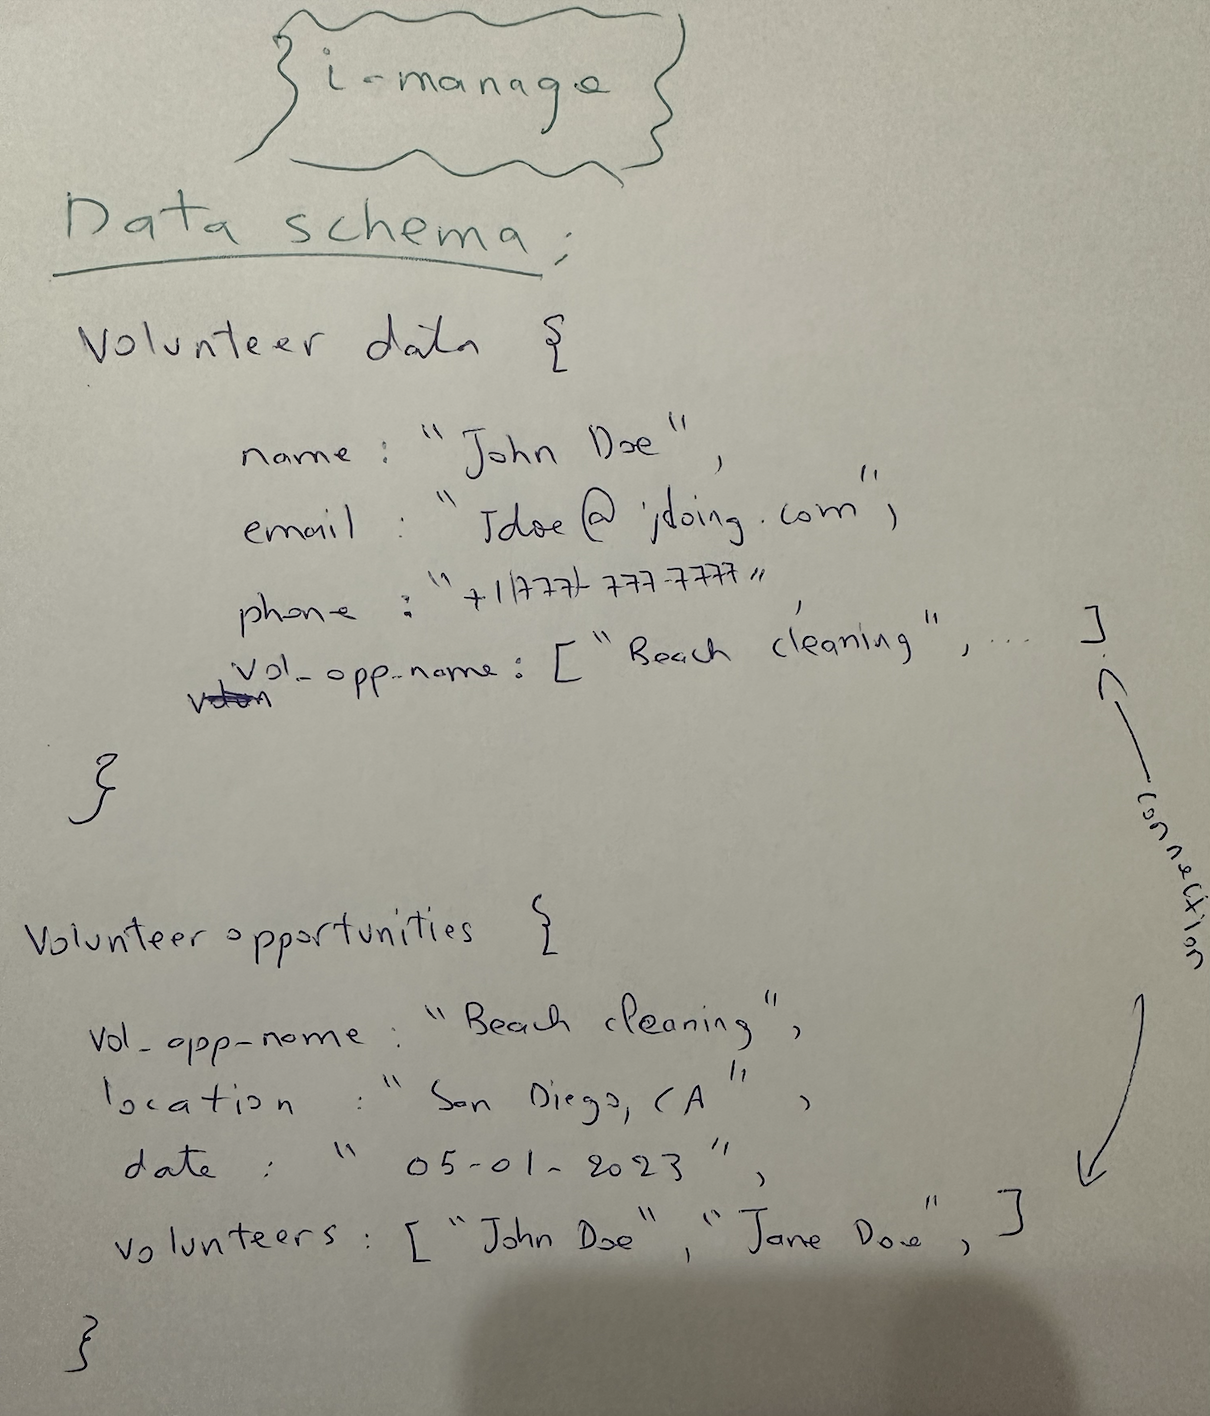 i-manage
Data schema:
Volunteer data {
name : "John Doe",
email : "Jdoe@jdoing.com",
phone : "+1(777)-777-7777",
vol_opp_name : ["Beach cleaning", ... ]
}
connection
Volunteer opportunities {
vol_opp_name : "Beach cleaning",
location : "San Diego, CA",
date : "05-01-2023",
volunteers : ["John Doe", "Jane Doe", ]
}